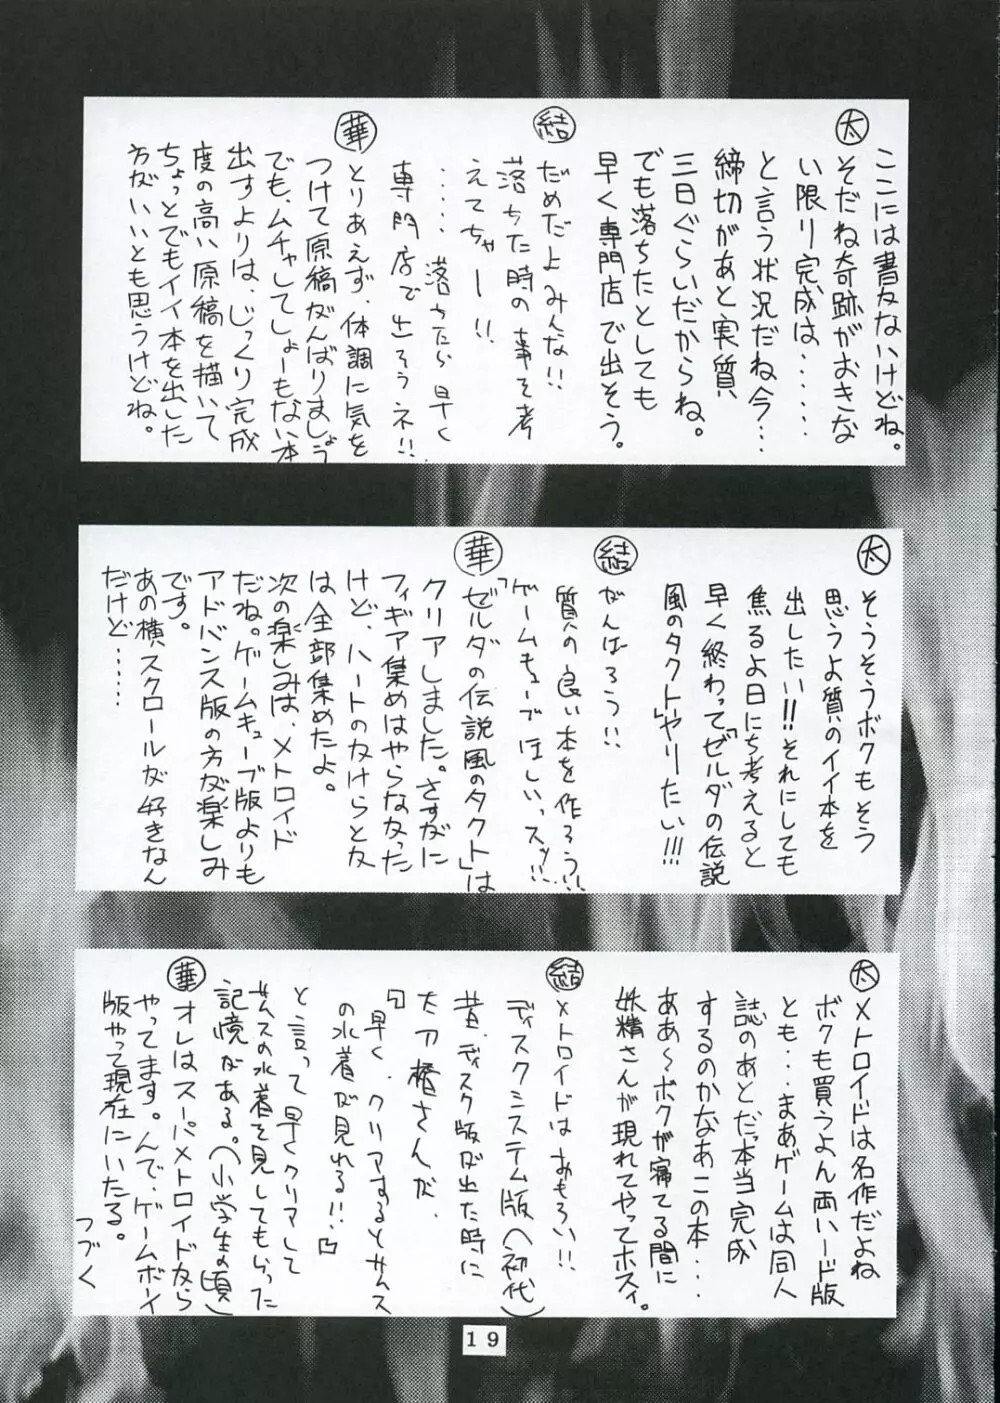 ここには書えないけどね。
太
そだね奇跡がおきな
い限り完成は‥‥‥
と言う状況だね今…
締切があと実質
三日ぐらいだからね。
でも落ちたとしても
早く専門店で出そう。
結
だめだよみんな!!
落ちた時の事を考
えてちゃー!!
‥‥落ちたら早く
専門店で出そうネ!!
華
とりあえず、体調に気を
つけて原稿がんばりましょう
でも、ムチャしてしょーもない本
出すよりは、じっくり完成
度の高い原稿を描いて
ちょっとでもイイ本を出した
方がいいとも思うけどね。
太
そうそうボクもそう
思うよ質のイイ本を
出したい!!それにしても
焦るよ日にち考えると
早く終わって「ゼルダの伝説
風のタクト」やりたい!!!
結
がんばろう!!
質の良い本を作ろう!!
「ゲームキューブほしいっス!!」
華
「ゼルダの伝説風のタクト」は
クリアしました。さすがに
フィギア集めはやらなかった
けど、ハートのかけらとか
は全部集めたよ。
次の楽しみは、メトロイド
だね。ゲームキューブ版よりも
アドバンス版の方が楽しみ
です。
あの横スクロールが好きなん
だけど‥‥‥
太
メトロイドは名作だよね
ボクも買うよん両ハード版
とも‥‥まあゲームは同人
誌のあとだ本当完成
するのかなあこの本‥‥
ああ〜ボクが寝てる間に
妖精さんが現れてやってホスィ。
結
メトロイドはおもろい!!
ディスクシステム版(初代)
昔、ディスク版が出た時に
大刀橋さんが、
『早く、クリアするとサムス
の水着が見れる!!』
と言って早くクリアして
サムスの水着を見してもらった
記憶がある。(小学生の頃)
華
オレはスーパーメトロイドなら
やってます。んで、ゲームボーイ
版やって現在にいたる。
つづく
19